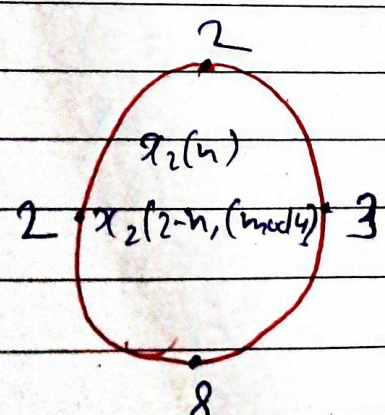 2
x₂(n)
2 x₂(2-n, (mod4) 3
8